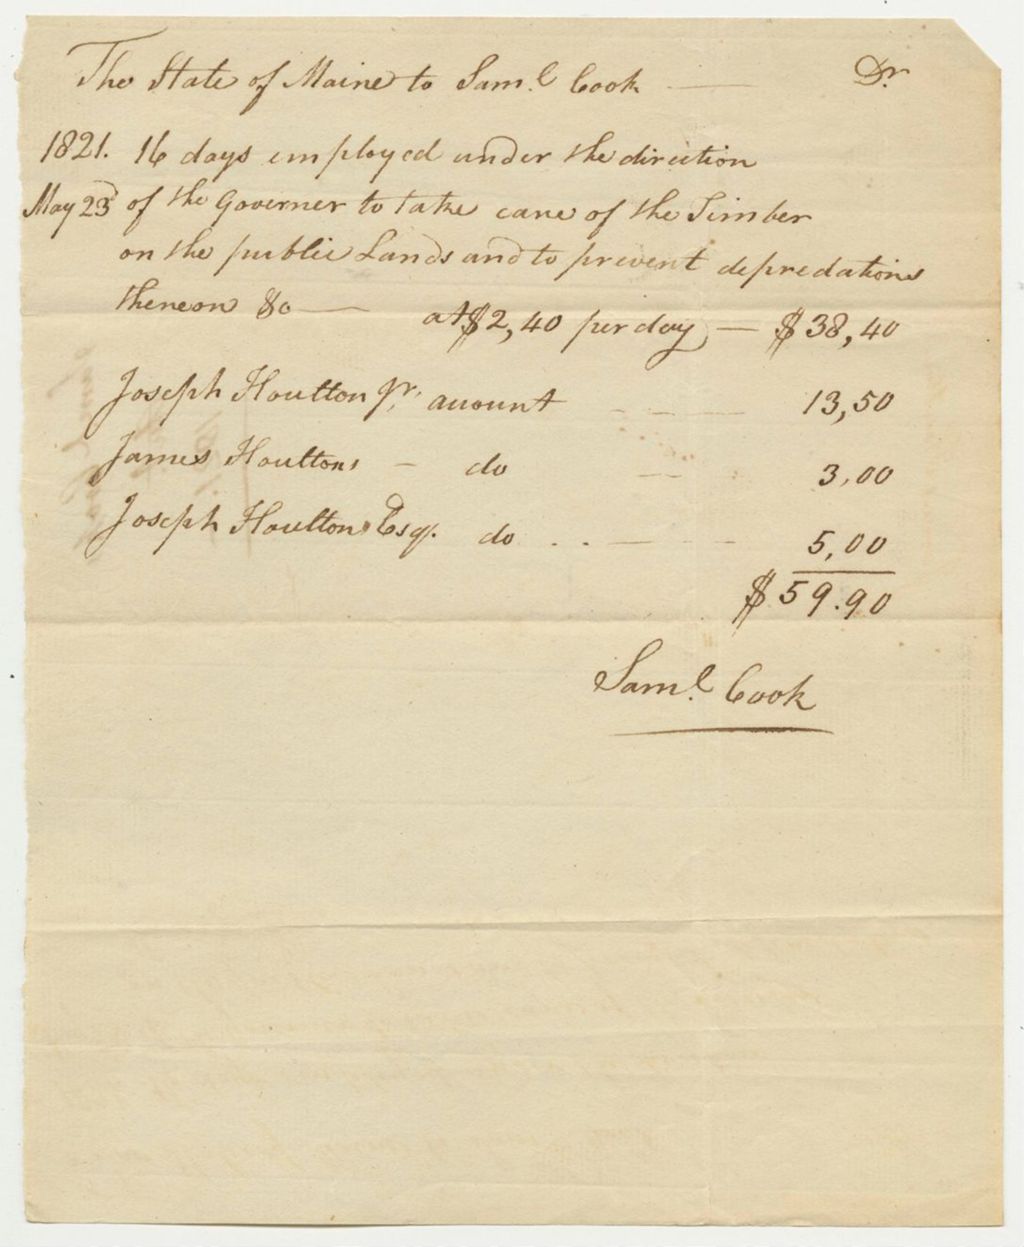 The State of Maine to Saml. Cook — Dr.
1821. 16 days employed under the direction
May 23d of the Governer to take care of the Timber
on the public Lands and to prevent depredations
thereon &c — at $2,40 per day — $38,40
Joseph Houlton Jr. account 13,50
James Houltons — do — 3,00
Joseph Houltons Esqr. do . . — 5,00
$59.90
Saml. Cook